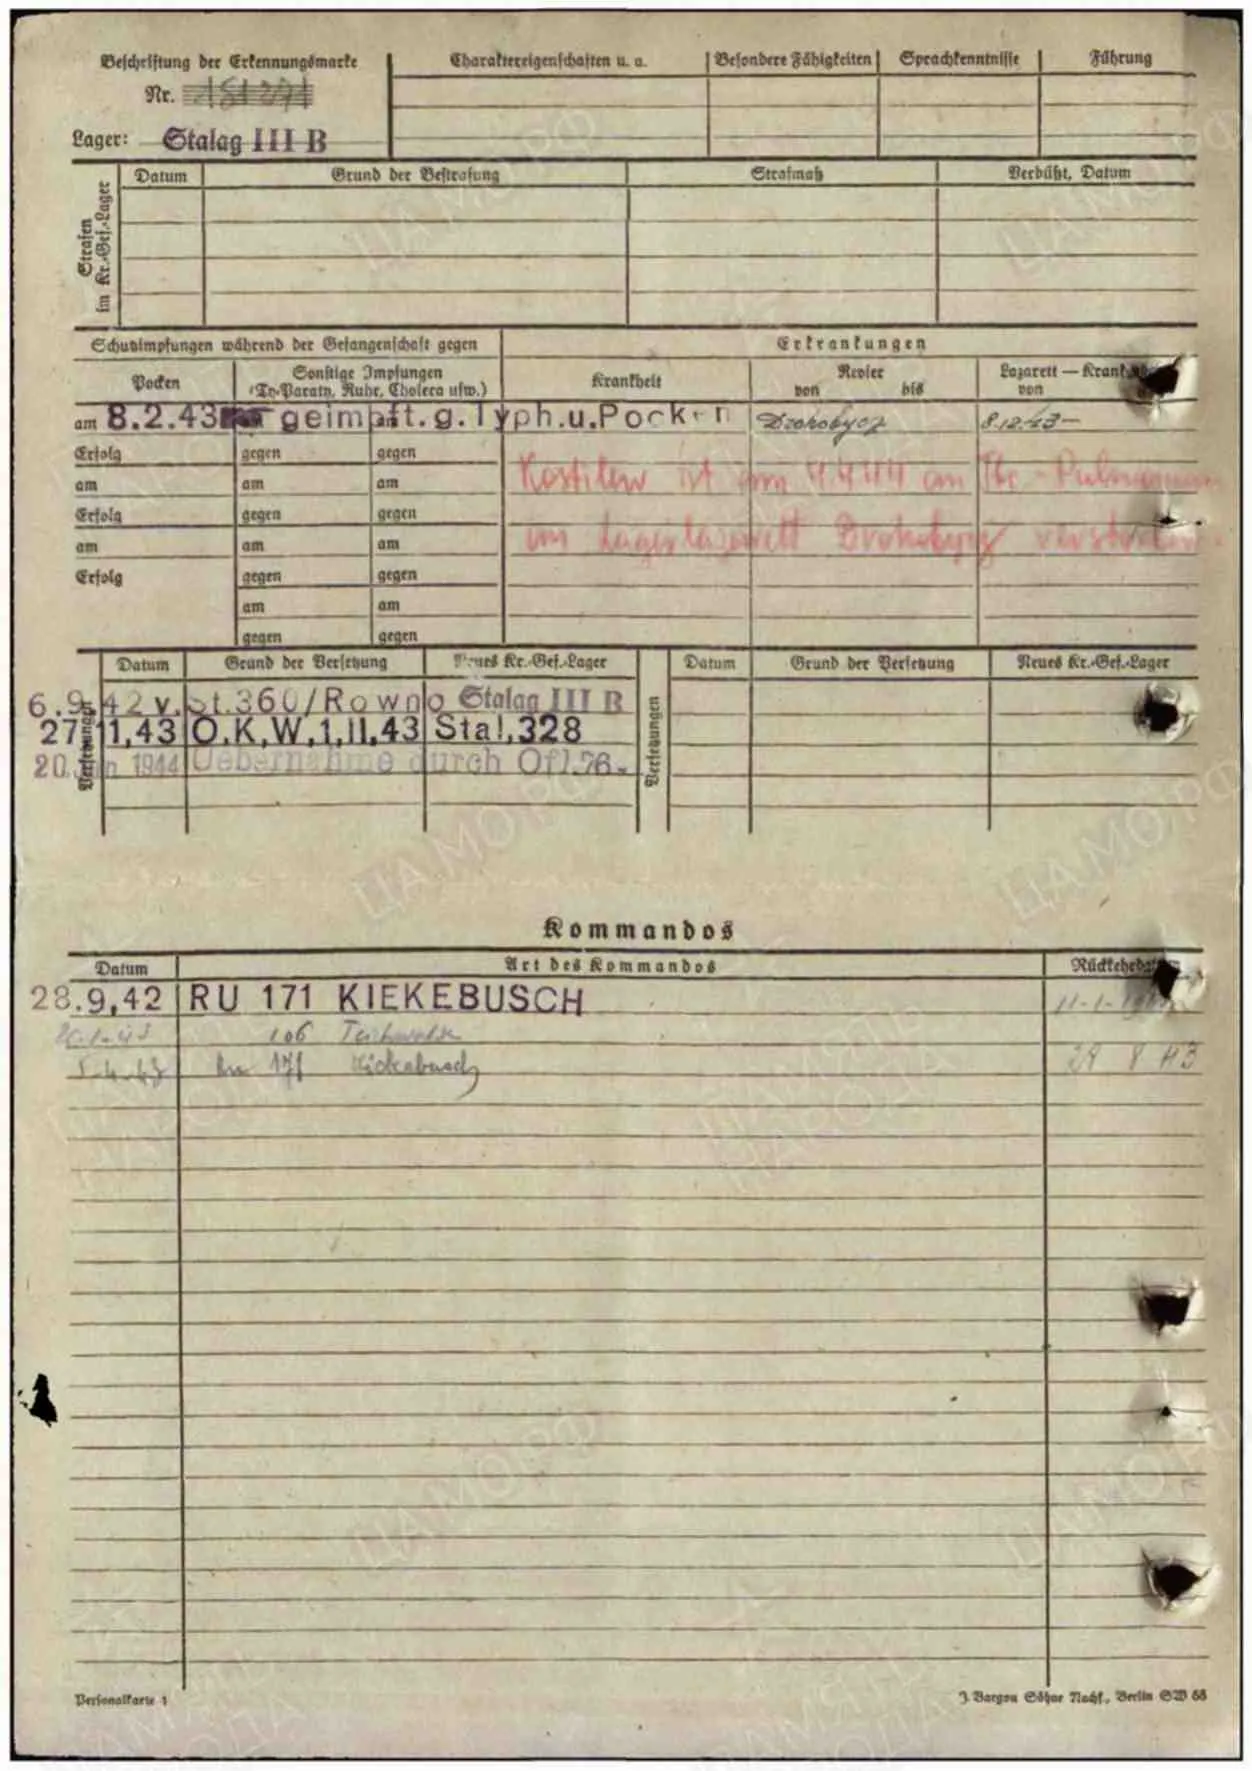 Beschriftung der Erkennungsmarke
Nr. 181271
Lager: Stalag III B
Charaktereigenschaften u. a. Besondere Fähigkeiten Sprachkenntnisse Führung
Strafen im Kr.-Gef.-Lager
Datum Grund der Bestrafung Strafmaß Verbüßt, Datum
Schutzimpfungen während der Gefangenschaft gegen Erkrankungen
Pocken Sonstige Impfungen Krankheit Revier Lazarett — Krankenh.
(Ty.-Paratyp, Ruhr, Cholera usw.) von bis von
am 8.2.43 geimpft.g.Typh.u.Pocken Drohobycz 8.12.43-
Erfolg gegen gegen
am am am ist am 4.4.44 an Tbc -
Erfolg gegen gegen
am am am im Lagerlazarett Drohobycz verstorben.
Erfolg gegen gegen
am am
gegen gegen
Versetzungen
Datum Grund der Versetzung Neues Kr.-Gef.-Lager
Versetzungen
Datum Grund der Versetzung Neues Kr.-Gef.-Lager
6.9.42 v. St.360/Rowno Stalag III B
27 11,43 O.K,W,1,II,43 Stal,328
20. Jan 1944 Uebernahme durch Ofl.76.
Kommandos
Datum Art des Kommandos
28.9,42 RU 171 KIEKEBUSCH
106
171 Kiekebusch 29 8 43
Personalkarte 1
J. Bargou Söhne Nachf., Berlin SW 68
ЦАМО РФ
ПАМЯТЬ НАРОДА